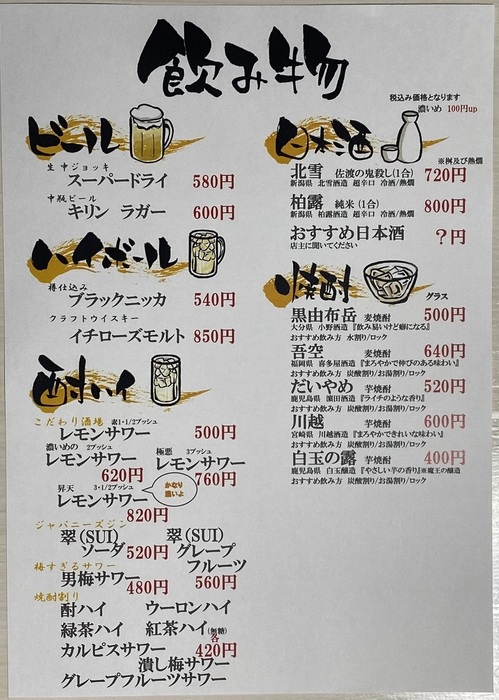 飲み物
税込み価格となります
濃いめ 100円up
ビール
生中ジョッキ
スーパードライ 580円
中瓶ビール
キリン ラガー 600円
ハイボール
樽仕込み
ブラックニッカ 540円
クラフトウイスキー
イチローズモルト 850円
酎ハイ
こだわり酒場 素1・1/2プッシュ
レモンサワー 500円
濃いめの 2プッシュ
レモンサワー
620円
極悪 3プッシュ
レモンサワー
760円
昇天 3・1/2プッシュ
レモンサワー
820円
かなり
濃いよ
ジャパニーズジン
翠(SUI)
ソーダ 520円
翠(SUI)
グレープ
フルーツ
560円
梅すぎるサワー
男梅サワー
480円
焼酎割り
酎ハイ ウーロンハイ
緑茶ハイ 紅茶ハイ(無糖)
各
カルピスサワー 420円
潰し梅サワー
グレープフルーツサワー
日本酒
※桝及び熱燗
北雪 佐渡の鬼殺し(1合) 720円
新潟県 北雪酒造 超辛口 冷酒/熱燗
柏露 純米(1合) 800円
新潟県 柏露酒造 超辛口 冷酒/熱燗
おすすめ日本酒 ?円
店主に聞いてください
焼酎
グラス
黒由布岳 麦焼酎 500円
大分県 小野酒造 『飲み易いけど癖になる』
おすすめ飲み方 水割り/ロック
吾空 麦焼酎 640円
福岡県 喜多屋酒造 『まろやかで伸びのある味わい』
おすすめ飲み方 炭酸割り/お湯割り/ロック
だいやめ 芋焼酎 520円
鹿児島県 濵田酒造 『ライチのような香り』
おすすめ飲み方 炭酸割り/お湯割り/ロック
川越 芋焼酎 600円
宮崎県 川越酒造 『まろやかできれいな味わい』
おすすめ飲み方 炭酸割り/お湯割り/ロック
白玉の露 芋焼酎 400円
鹿児島県 白玉醸造 『やさしい芋の香り』※魔王の醸造
おすすめ飲み方 炭酸割り/お湯割り/ロック